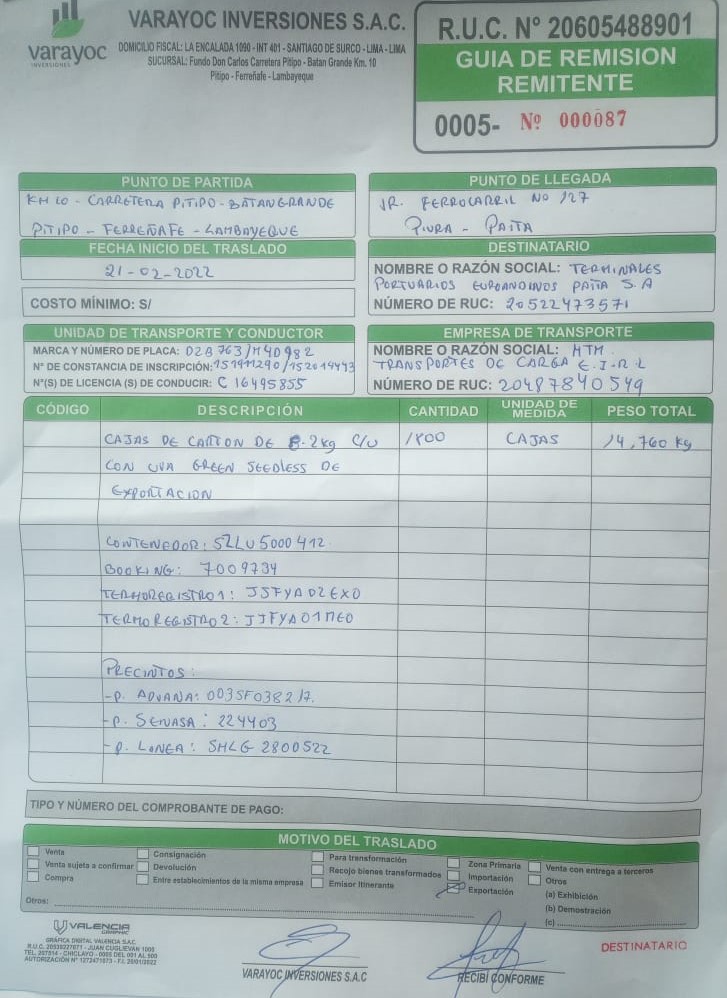 varayoc
INVERSIONES
VARAYOC INVERSIONES S.A.C.
DOMICILIO FISCAL: LA ENCALADA 1090 - INT 401 - SANTIAGO DE SURCO - LIMA - LIMA
SUCURSAL: Fundo Don Carlos Carretera Pitipo - Batan Grande Km. 10
Pitipo - Ferreñafe - Lambayeque
R.U.C. Nº 20605488901
GUIA DE REMISION
REMITENTE
0005- Nº 000087
PUNTO DE PARTIDA
KM 10 - CARRETERA PITIPO - BATANGRANDE
PITIPO - FERREÑAFE - LAMBAYEQUE
PUNTO DE LLEGADA
JR. FERROCARRIL NO 127
PIURA - PAITA
FECHA INICIO DEL TRASLADO
21-02-2022
COSTO MÍNIMO: S/
DESTINATARIO
NOMBRE O RAZÓN SOCIAL: TERMINALES
PORTUARIOS EUROANDINOS PAITA S.A
NÚMERO DE RUC: 20522473571
UNIDAD DE TRANSPORTE Y CONDUCTOR
MARCA Y NÚMERO DE PLACA: D2B 763/M4D982
Nº DE CONSTANCIA DE INSCRIPCIÓN: 151911290/152014443
Nº(S) DE LICENCIA (S) DE CONDUCIR: C 16495855
EMPRESA DE TRANSPORTE
NOMBRE O RAZÓN SOCIAL: MTM
TRANSPORTES DE CARGA E.I.R.L
NÚMERO DE RUC: 20487840549
CÓDIGO DESCRIPCIÓN CANTIDAD UNIDAD DE MEDIDA PESO TOTAL
CAJAS DE CARTON DE 8.2kg C/U 1800 CAJAS 14,760 kg
CON UVA GREEN SEEDLESS DE
EXPORTACION
CONTENEDOR: SZLU5000412
BOOKING: 7009734
TERMOREGISTRO 1: JJFYAD2EXO
TERMOREGISTRO 2: JJFYA01MEO
PRECINTOS:
-P. ADUANA: 003SF038217.
-P. SENASA: 224403
-P. LINEA: SHLG 2800522
TIPO Y NÚMERO DEL COMPROBANTE DE PAGO:
MOTIVO DEL TRASLADO
Venta
Venta sujeta a confirmar
Compra
Consignación
Devolución
Entre establecimientos de la misma empresa
Para transformación
Recojo bienes transformados
Emisor Itinerante
Zona Primaria
Importación
Exportación
Venta con entrega a terceros
Otros
(a) Exhibición
(b) Demostración
(c)
Otros:
VALENCIA
GRAPHIC
GRÁFICA DIGITAL VALENCIA S.A.C.
VARAYOC INVERSIONES S.A.C
RECIBÍ CONFORME
DESTINATARIO